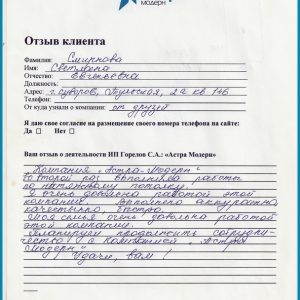 Модерн
Отзыв клиента
Фамилия: Смирнова
Имя: Светлана
Отчество: Евгеньевна
Должность:
Адрес: г. Суворов, Тульская, 2а кв 146
Телефон:
От куда узнали о компании: от друзей
Я даю свое согласие на размещение своего номера телефона на сайте:
Да Нет
Ваш отзыв о деятельности ИП Горелов С.А.: «Астра Модерн»
Компания „Астра-Модерн"
во второй раз выполняет работы
по натяжному потолку.
Я очень довольна работой этой
компании. Выполнено аккуратно,
качественно, быстро.
Моя семья очень довольна работой
этой компании.
Планируем продолжить сотрудни-
чество с компанией „Астра
Модерн"
Удачи, вам!